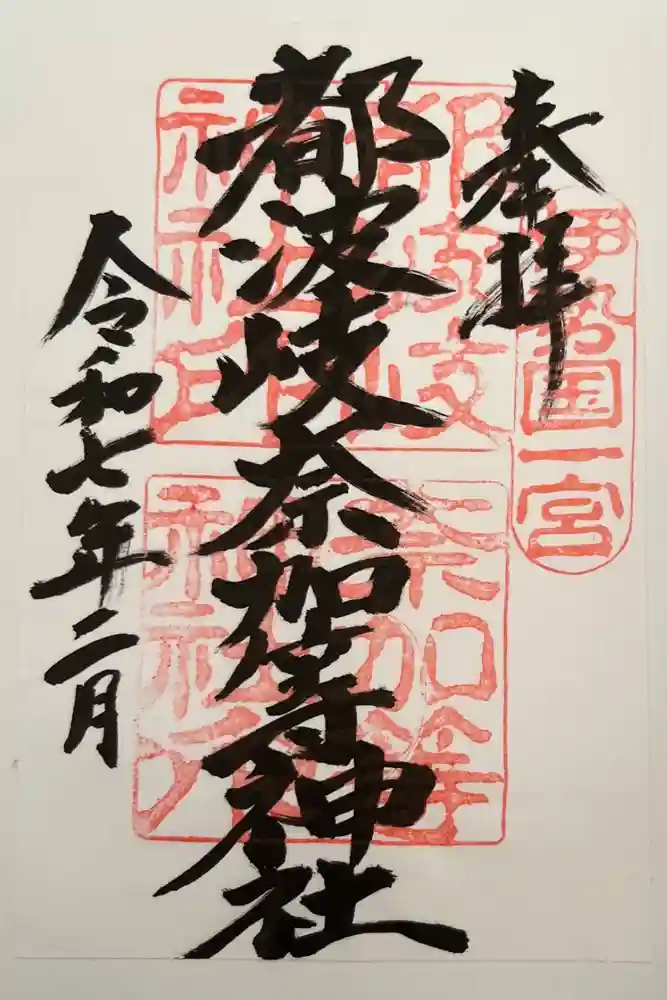 奉拝
伊勢国一宮
都波岐奈加等神社
令和七年二月
都波岐
神社印
奈加等
神社印